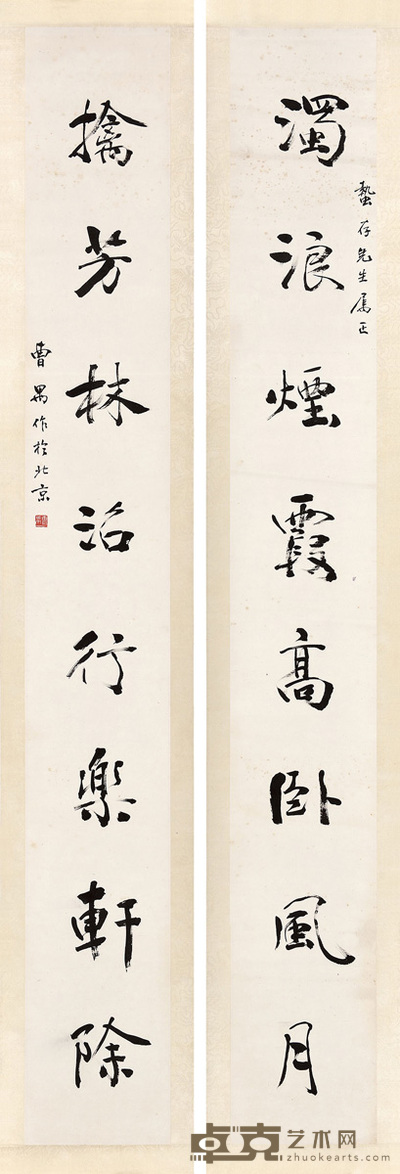 濁浪煙霞高卧風月
蟄存先生属正
擒芳林沼行樂軒除
曹禺作於北京
卓克艺术网
zhuokearts.com